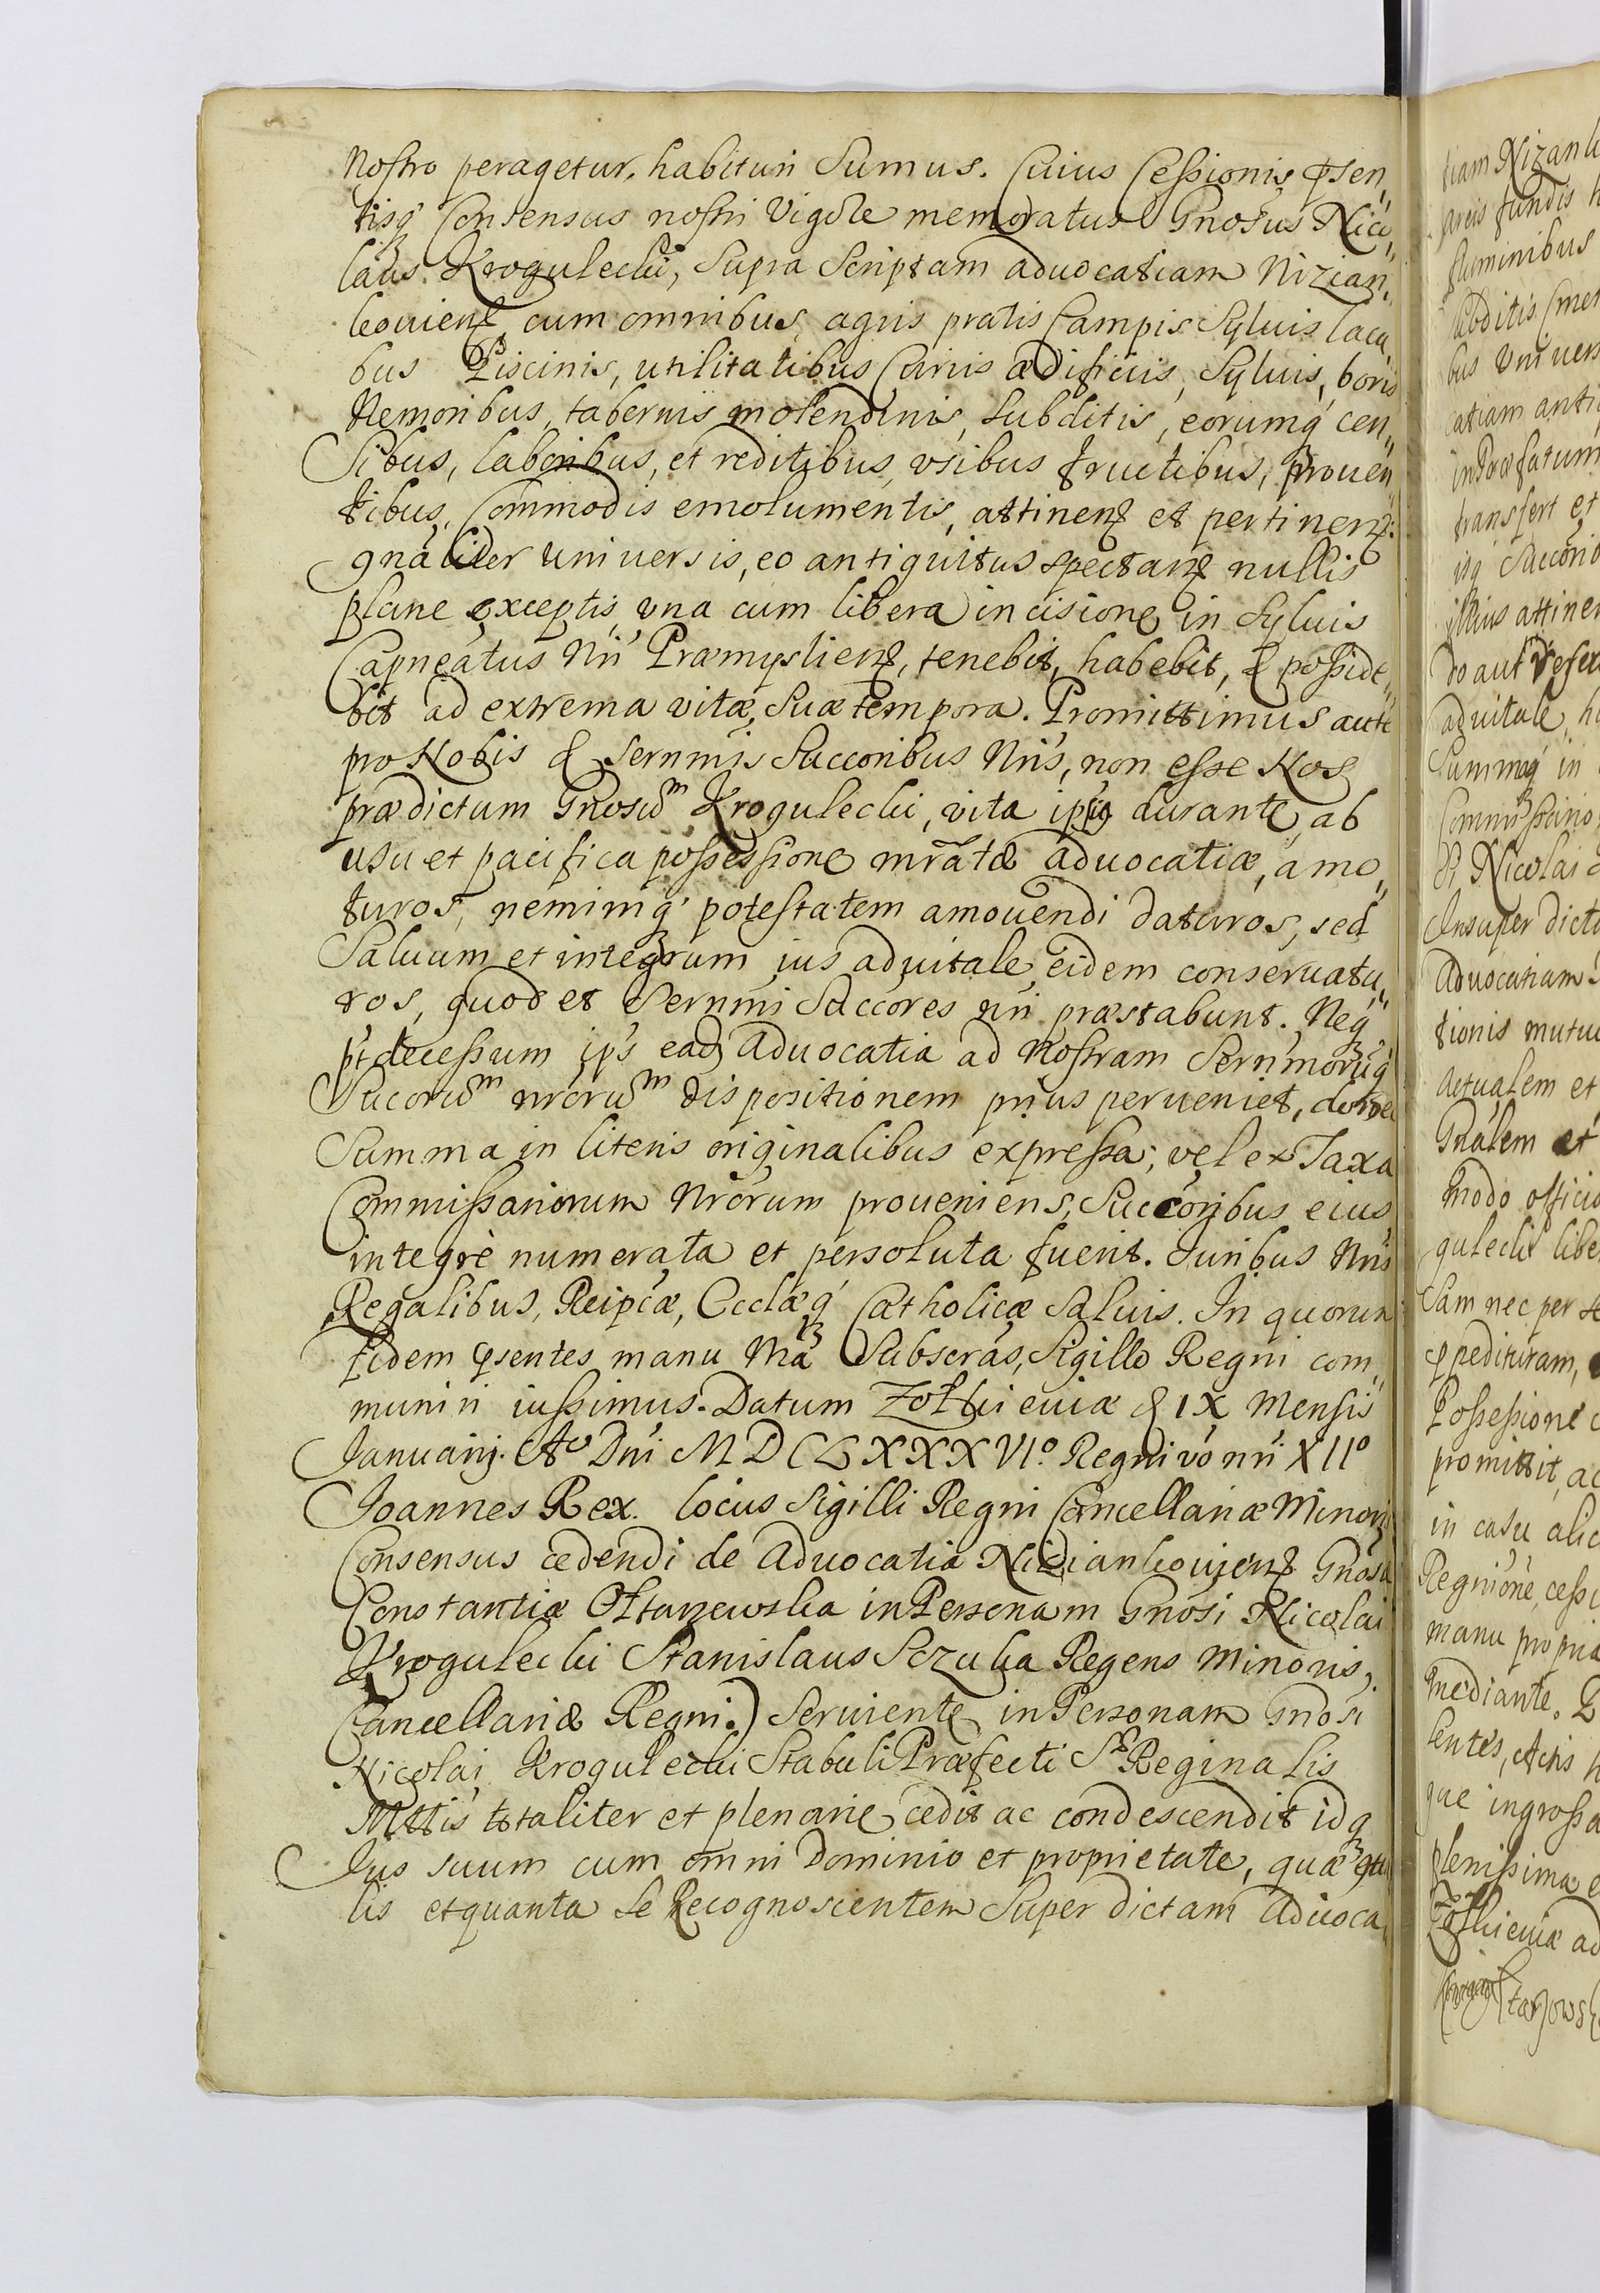 Nostro peragetur, habituri Sumus. Cuius Cessionis psen„
tisq Consensus nostri Vigóre memoratus Gnosus Nico„
laus Krogulecki, Supra Scriptam aduocatiam Nizian„
kouiens cum omnibus agris pratis Campis Syluis lacu„
bus Piscinis, utilitatibus Curiis ædificiis, Syluis, boris
Nemoribus, tabernis molendinis, Subditis, eorumq cen„
Sibus, laboribus, et reditibus, vsibus fructibus, prouen„
tibus, Commodis emolumentis, attinens et pertinens:
gnáliter uniuersis, eo antiquitus spectans nullis
plane exceptis vna cum libera incisione in Syluis
Capneatus Nri Præmysliens, tenebit, habebit, & posside„
bit ad extrema vitæ, Suæ tempora. Promittimus aute
pro Nobis & Sernmis Succoribus Nris, non esse Nos
prædictum Gnosum Krogulecki, vita ipsiq durante, ab
usu et pacifica possessione mratæ aduocatiæ, amo„
turos, neminiq potestatem amouendi daturos, sed
Saluum et integrum ius aduitale eidem conseruatu„
ros, quod et Sernmi Succores nri præstabunt. Neq
pt decessum ips ead Aduocatia ad Nostram Sernmorúq
Sucorum nrorum dispositionem prius perueniet, donec
Summa in literis originalibus expressa, vel ex Taxa
Commissariorum Nrorum proueniens, Succoribus eius
integrè numerata et persoluta fuerit. Iuribus Nris
Regalibus, Reipcæ, Ecclæq Catholicæ Saluis. In quorum
fidem psentes manu Nra Subscras, Sigillo Regni com„
muniri iussimus. Datum Zołkieuiæ d IX Mensis
Januarij. Ao Dni MDCLXXXVIo. Regni vo nri XIIo
Joannes Rex. locus Sigilli Regni Cancellariæ Minoris
Consensus cedendi de Aduocatia Niziankouiens Gnosa
Constantiæ Ołtarzewska in Personam Gnosi Nicolai
Krogulecki Stanislaus Sczuka Regens Minoris,
Cancellariæ Regni.) Seruiente in Personam Gnosi
Nicolai Krogulecki Stabuli Præfecti Sæ Reginalis
Mttis totaliter et plenarie cedit ac condescendit idq
Jus suum cum omni Dominio et proprietate, quæ qta
lis et quanta Se Recognoscentem Super dictam Aduoca„
tiam Nizank
areis fundis
fluminibus
Subditis
bus vniuers
catiam
in Præfatum
transfert et
isq Succorib
illius attinen
do aut
aduitale
Summaq in
Nicolai
Insuper dict
Aduocatiam
tionis mutu
actualem et
Gnalem et
modo officio
guleckі libe
Sam nec per se
ppedituram,
Possessione
promittit, ac
in casu alic
Regni one, cessi
manu propria
mediante. P
sentes, Actis
que ingrossa
plenissima
Zołkieuiæ ad